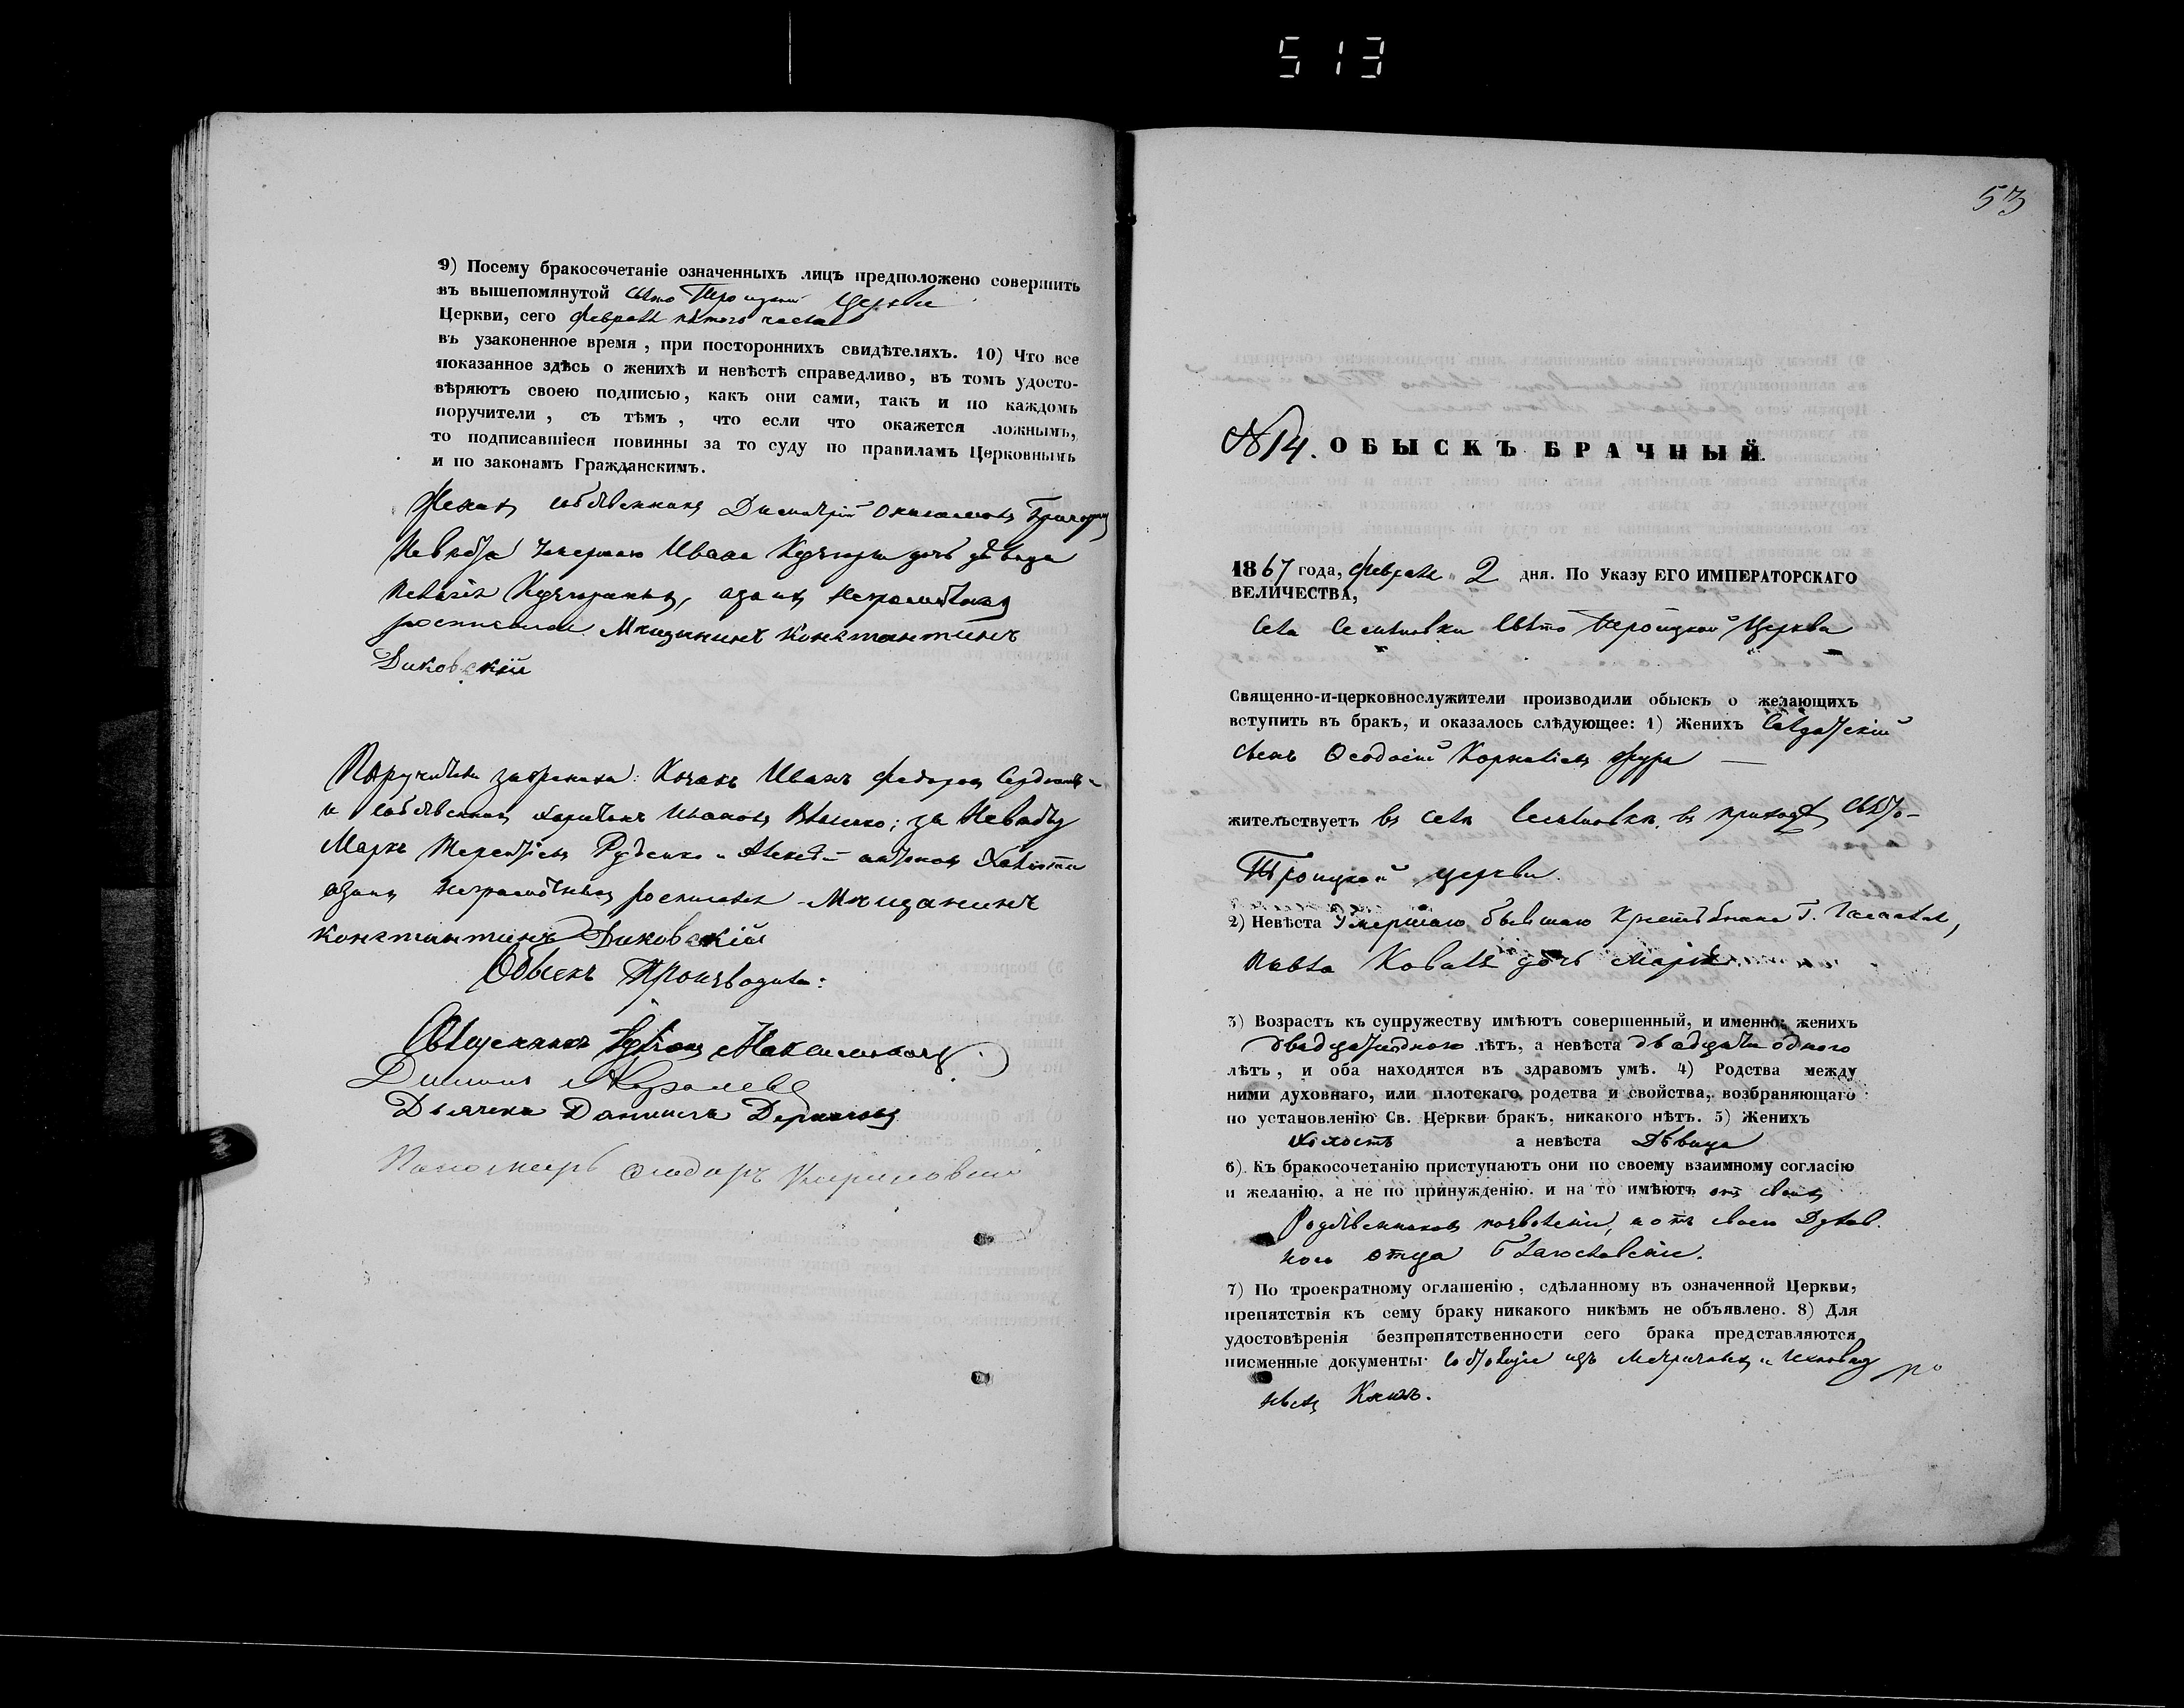 513
9) Посему бракосочетаніе означенныхъ лицъ предположено совершить
въ вышепомянутой Свято Троицкой Церкви
Церкви, сего Февраля пятого числа
въ узаконенное время, при постороннихъ свидѣтеляхъ. 10) Что все
показанное здѣсь о женихѣ и невѣстѣ справедливо, въ томъ удосто-
вѣряютъ своею подписью, какъ они сами, такъ и по каждомъ
поручители, съ тѣмъ, что если что окажется ложнымъ,
то подписавшіеся повинны за то суду по правиламъ Церковнымъ
и по законамъ Гражданскимъ.
Женихъ собственникъ Димитрій
Невѣста умершаго Ивана дочь дѣвица
Пелагія а за ихъ неграмотныхъ
росписался Мѣщанинъ Константинъ
Диковскій
Поручители за жениха: Козакъ Иванъ Федоровъ
и собственникъ Харитонъ Ивановъ за Невѣсту
Маркъ Терентіевъ Руденко и Алексѣй
а за ихъ неграмотныхъ росписался Мѣщанинъ
Константинъ Диковскій
Обыскъ производили:
Священникъ Максимовичъ
Диконъ
Дьячекъ Даніилъ
Пономарь
53
№ 14. ОБЫСКЪ БРАЧНЫЙ.
1867 года, Февраля 2 дня. По Указу ЕГО ИМПЕРАТОРСКАГО
ВЕЛИЧЕСТВА,
Села Свято Троицкой Церкви
Священно-и-церковнослужители производили обыскъ о желающихъ
вступить въ бракъ, и оказалось слѣдующее: 1) Женихъ Солдатскій
сынъ Ѳеодосій Корниліевъ
жительствуетъ въ селѣ въ приходѣ Свято-
Троицкой церкви.
2) Невѣста Умершаго бывшаго крестьянина Г.
Павла Коваля дочь Марія.
3) Возрастъ къ супружеству имѣютъ совершенный, и именно: женихъ
двадцатиодного лѣтъ, а невѣста двадцати одного
лѣтъ, и оба находятся въ здравомъ умѣ. 4) Родства между
ними духовнаго, или плотскаго родства и свойства, возбраняющаго
по установленію Св. Церкви бракъ, никакого нѣтъ. 5) Женихъ
холостъ а невѣста Дѣвица
6) Къ бракосочетанію приступаютъ они по своему взаимному согласію
и желанію, а не по принужденію, и на то имѣютъ отъ своихъ
Родственниковъ позволеніе, а отъ своего Духов.
ного отца благословеніе.
7) По троекратному оглашенію, сдѣланному въ означенной Церкви,
препятствія къ сему браку никакого никѣмъ не объявлено. 8) Для
удостовѣренія безпрепятственности сего брака представляются
писменные документы: изъ Метрическихъ и Исповѣд
ныхъ Книгъ.